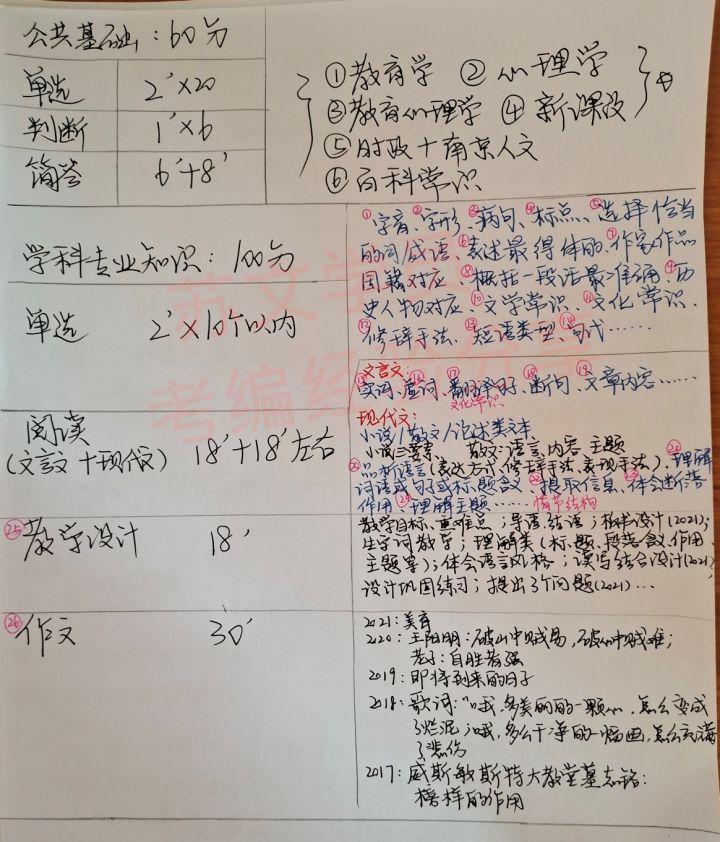 公共基础：60分
单选 2'×20
判断 1'×6
简答 6'+8'
①教育学 ②心理学
③教育心理学 ④新课改
⑤时政+南京人文
⑥百科常识
学科专业知识：100分
单选 2'×10个以内
①字音、②字形、③病句、④标点、⑤选择恰当
的词/成语、⑥表述最得体的、⑦作家作品
国籍对应、⑧概括一段话最准确、⑨历
史人物对应、⑩文学常识、⑪文化常识、
⑫修辞手法、⑬短语类型、⑭句式……
文言文：
⑮实词、⑯虚词、⑰翻译好、⑱断句、⑲文章内容……
文化常识
现代文：
小说/散文/论述类文本
小说三要素 散文：语言、内容、主题
⑳品析语言(表达方式、修辞手法、表现手法)、㉑理解
词语或句或标题含义、㉒提取信息、㉓体会断落
作用、㉔理解主题……情节结构
阅读
(文言文+现代文) 18'+18'左右
㉕教学设计 18'
教学目标、重难点；导语、结语；板书设计(2021)；
生字词教学；理解类(标题、段落含义、作用
主题等)；体会语言风格；读写结合设计(2021)
设计巩固练习；提出3个问题(2021)…
㉖作文 30'
2021：美育
2020：王阳明：破山中贼易，破心中贼难；
老子：自胜者强
2019：即将到来的日子
2018：歌词："哦，多美丽的一颗心，怎么变成
了烂泥；哦，多么干净的一幅画，怎么充满
了悲伤
2017：威斯敏斯特大教堂墓志铭：
榜样的作用
苏文学
考编经验分享